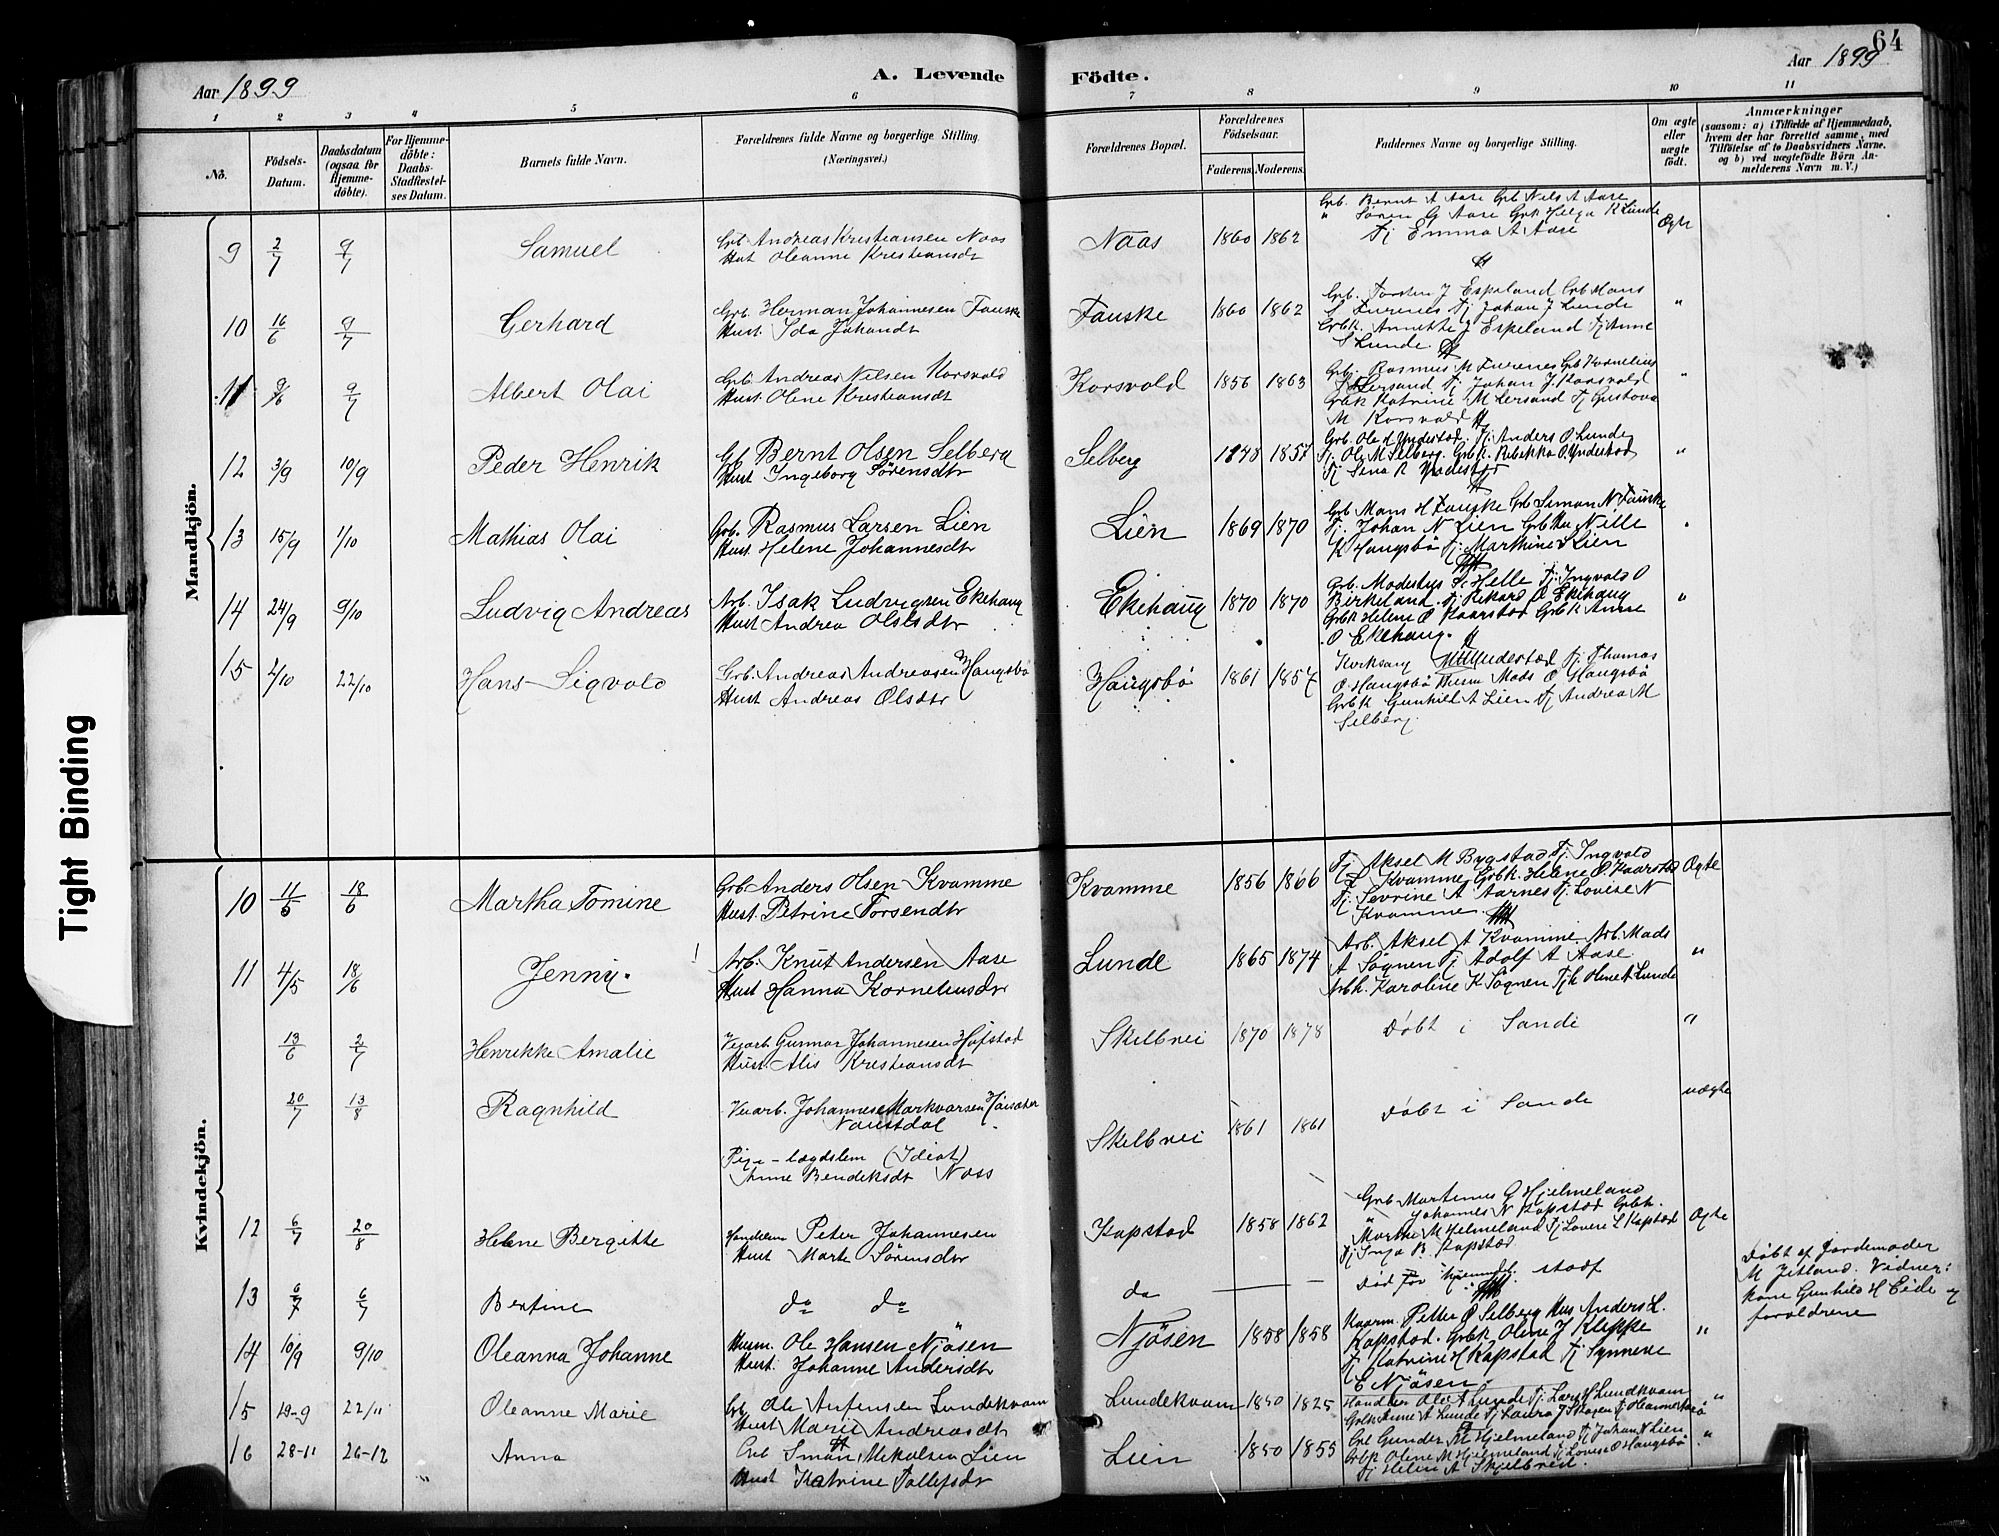 64
Aar 1899
A. Levende Födte.
Aar 1899
1 2 3 4 5 6 7 8 9 10 11
No.
Födsels-Datum.
Daabsdatum (ogsaa for Hjemme-döbte).
For Hjemme-döbte: Daabs-Stadfæstel-ses Datum.
Barnets fulde Navn.
Forældrenes fulde Navne og borgerlige Stilling. (Næringsvei.)
Forældrenes Bopæl.
Forældrenes Födselsaar.
Faderens. Moderens.
Faddernes Navne og borgerlige Stilling.
Om ægte eller uægte födt.
Anmærkninger
(saasom: a) i Tilfælde af Hjemmedaab, hvem der har forrettet samme, med Tilföielse af to Daabsvidners Navne. og b) ved uægtefödte Börn Anmelderens Navn m. V.)
Mandkjön.
9 2/7 9/7 Samuel Grb. Andreas Kristiansen Naas
Hust Oleanne Kristiansdt
Naas 1860 1862 Grb. Bernt A Aase Grb Nils A Aase
" Sören G Aase Grbk Helga K Lunde
Tj Emma A Aase
Ægte
10 16/6 9/7 Gerhard Grb. Herman Johannesen Fauske
Hust. Ida Johandt
Fauske 1860 1862 Grb. Torsten J Espeland Grb Mons
S Furenes Tj Johan J Lunde
Grbk. Annette J Espeland Tj Anne
S Lunde.
"
11 9/6 9/7 Albert Olai Grb. Andreas Nilsen Korsvold
Hust. Olene Kristiansdt
Korsvold 1856 1863 Grb. Rasmus M Furenes Grb Kornelius
Lersand Tj Johan J Korsvold
Grbk Katrine M Lersand Tj Gustova
M Korsvold
"
12 3/9 10/9 Peder Henrik Gb Bernt Olsen Selberg
Hust Ingeborg Sörensdtr
Selberg 1848 1857 Grb. Ole Yndestad. Tj. Anders O Lunde
Tj Ole M Selberg. Grbk. Rebekka O Yndestad
Tj Sena R Yndestad
"
13 15/9 1/10 Mathias Olai Grb. Rasmus Larsen Lien
Hust. Helene Johannesdtr
Lien 1869 1870 Grb Mons H Fauske Grb Simon N Fauske
Tj. Johan N Lien Grbk Nille
K Haugsbö Tj. Marthine Lien
"
14 24/9 9/10 Ludvig Andreas Arb. Isak Ludvigsen Ekehaug
Hust Andrea Olsdtr
Ekehaug 1870 1870 Grb. Modestus Helle Tj. Ingvald O
Birkeland. Tj. Rikard O Ekehaug
Grbk Helene O Kaarstad Grbk Anne
O Ekehaug.
"
15 2/10 22/10 Hans Sigvald Grb. Andreas Andreasen Haugsbö
Hust Andreas Olsdtr
Haugsbö 1861 1857 Kirksang Yndestad Tj. Thomas
O Haugsbö Mads O Haugsbö
Grbk Gunhild A Lien Tj Andrea M
Selberg.
Kvindekjön.
10 11/5 18/6 Martha Tomine Grb Anders Olsen Kvamme
Hust. Petrine Torsendtr
Kvamme 1856 1866 Tj Aksel M Bygstad Tj. Ingvald
Kvamme Grbk. Helene O Kaarstad
Tj Sevrine A Aarnes Tj Lovise N
Kvamme
Ægte
11 4/5 18/6 Jenny. Arb. Knut Andersen Aase
Hust Hanna Korneliusdtr
Lunde 1865 1874 Arb. Aksel A Kvamme Arb. Mads
A Sognen Tj Adolf A Aase
Arbk. Karoline K Sognen Tjk Oline A Lunde
"
13/6 2/7 Henrikke Amalie Veiarb Gunnar Johannesen Hofstad
Hust. Alis Kristiansdt
Skilbrei 1870 1878 Döbt i Sande "
20/7 13/8 Ragnhild Veiarb. Johannes Markvarsen
Naustdal
Pige - lægdslem (Idiot)
Anne Bendeksdt Naas
Skilbrei 1861 1861 Döbt i Sande uægte
12 6/7 20/8 Helene Bergitte Handlem Peter Johannesen
Hust Marte Sörensdtr
Kapstad 1858 1862 Grb Martinus G Hjelmeland
" Johannes N Kapstad Grbk.
Marthe M Hjelmeland Tj Lovise L Kapstad
Tj Inga B Kapstad
Ægte
13 6/7 6/7 Bertine do do do Död för hjemmed. stadf
Döbt af Jordemoder
M Jitland. Vidner:
kone Gunhild H Eide og
forældrene
14 10/9 9/10 Oleanna Johanne Husm. Ole Hansen Njösen
Hust. Johanne Andersdtr
Njösen 1858 1858 Kaarm. Petter O Selberg Hus Anders L.
Kapstad. Grbk Oline J Kleppe
Tj Katrine H Kapstad Tj Synneve
E Njösen.
"
15 19-9 22/11 Oleanne Marie Grb Ole Antensen Lundekvam
Hust Marie Andreasdtr
Lundekvam 1850 1825 Handlm Ole A Lunde Tj. Lars H Lundkvam
Grbk Anne A Lunde Tj Laura J Skogen
"
16 28-11 26-12 Anna Grb Simon Mikalsen Lien
Hust Katrine Tollefsdtr
Lien 1850 1855 Grb Gunder M Hjelmeland Tj Johan N Lien
Grbk Oline M Hjelmeland Tj Lovise O Haugsbö
Tj Helen A Skjelbred.
"
Tight Binding